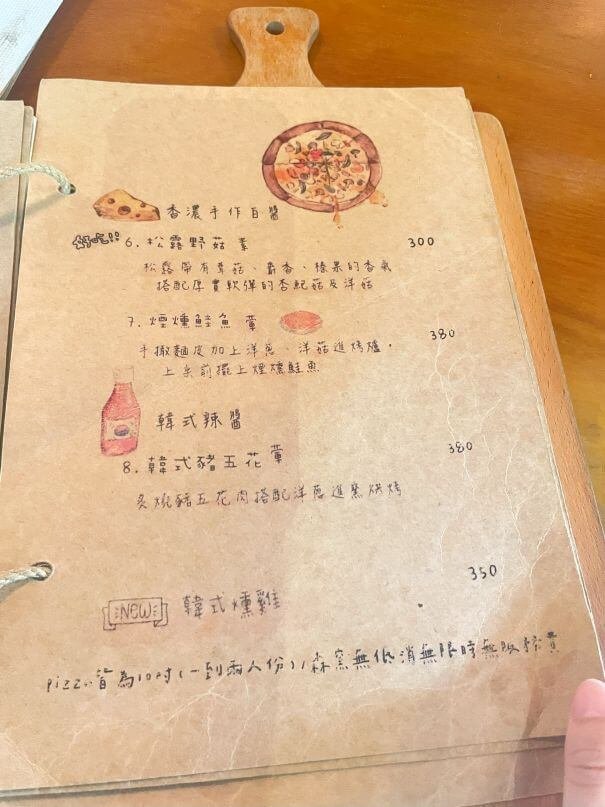 香濃手作白醬
好吃!! 6. 松露野菇 素 300
松露帶有蕈菇、麝香、榛果的香氣
搭配厚實軟彈的杏鮑菇及洋菇
7. 煙燻鮭魚 葷 380
手撒麵皮加上洋蔥、洋菇進烤爐，
上桌前擺上煙燻鮭魚
韓式辣醬
8. 韓式豬五花 葷 380
炙燒豬五花肉搭配洋蔥進窯烘烤
NEW 韓式燻雞 350
pizza皆為10吋(一到兩人份)/森窯無低消無限時無服務費